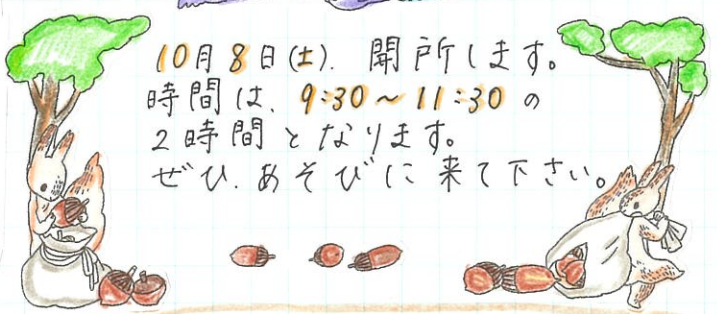 10月8日(土)、開所します。
時間は、9:30～11:30の
2時間となります。
ぜひ、あそびに来て下さい。